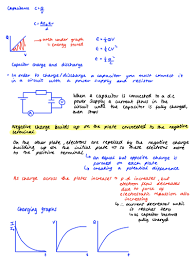 Capacitance C = Q/V
area under graph
= energy stored
E = ½QV
E = ½CV²
Capacitor charge and discharge
In order to charge/discharge a capacitor you must connect it
in a circuit with a power supply and resistor
When a capacitor is connected to a d.c
power supply a current flows in the
circuit until the capacitor is fully charged,
then stops
Negative charge builds up on the plate connected to the negative
terminal
On the other plate, electrons are repelled by the negative charge
building up on the initial plate so these electrons move
to the positive terminal
an equal but opposite charge is
formed on each plate
creating a potential difference
As charge across the plates increases
p.d increases, but
electron flow decreases
due to force of
electrostatic repulsion also
increasing
current decreases until
it reaches zero
capacitor
fully charged
Charging graphs